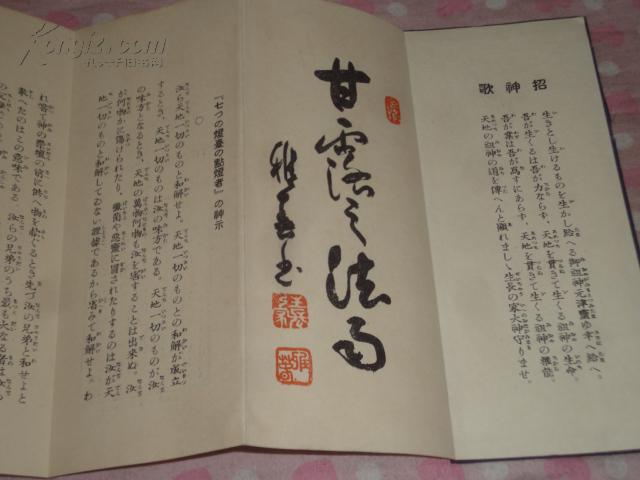 招神歌
生きとし生けるものを生かし給へる御祖神元津靈ゆ幸へ給へ。
吾が生くるは吾が力ならず、天地を貫きて生くる祖神の生命。
吾が業は吾が爲すにあらず、天地を貫きて生くる祖神の權能。
天地の祖神の道を傳へんと顯れましゝ生長の家大神守りませ。
甘露之法雨
雅春書
『七つの燈臺の點燈者』の神示
汝ら天地一切のものと和解せよ。天地一切のものとの和解が成立
するとき、天地一切のものは汝の味方である。天地一切のものが汝
の味方となるとき、天地の萬物何物も汝を害することは出來ぬ。汝
が何物かに傷けられたり、黴菌や惡靈に冒されたりするのは汝が天
地一切のものと和解してゐない證據であるから省みて和解せよ。わ
れ嘗て神の祭壇の前に供へ物を献ぐるとき先づ汝の兄弟と和せよと
敎へたのはこの意味である。汝らの兄弟のうち最も大なる者は汝ら
Kongfz.com
孔夫子旧书网